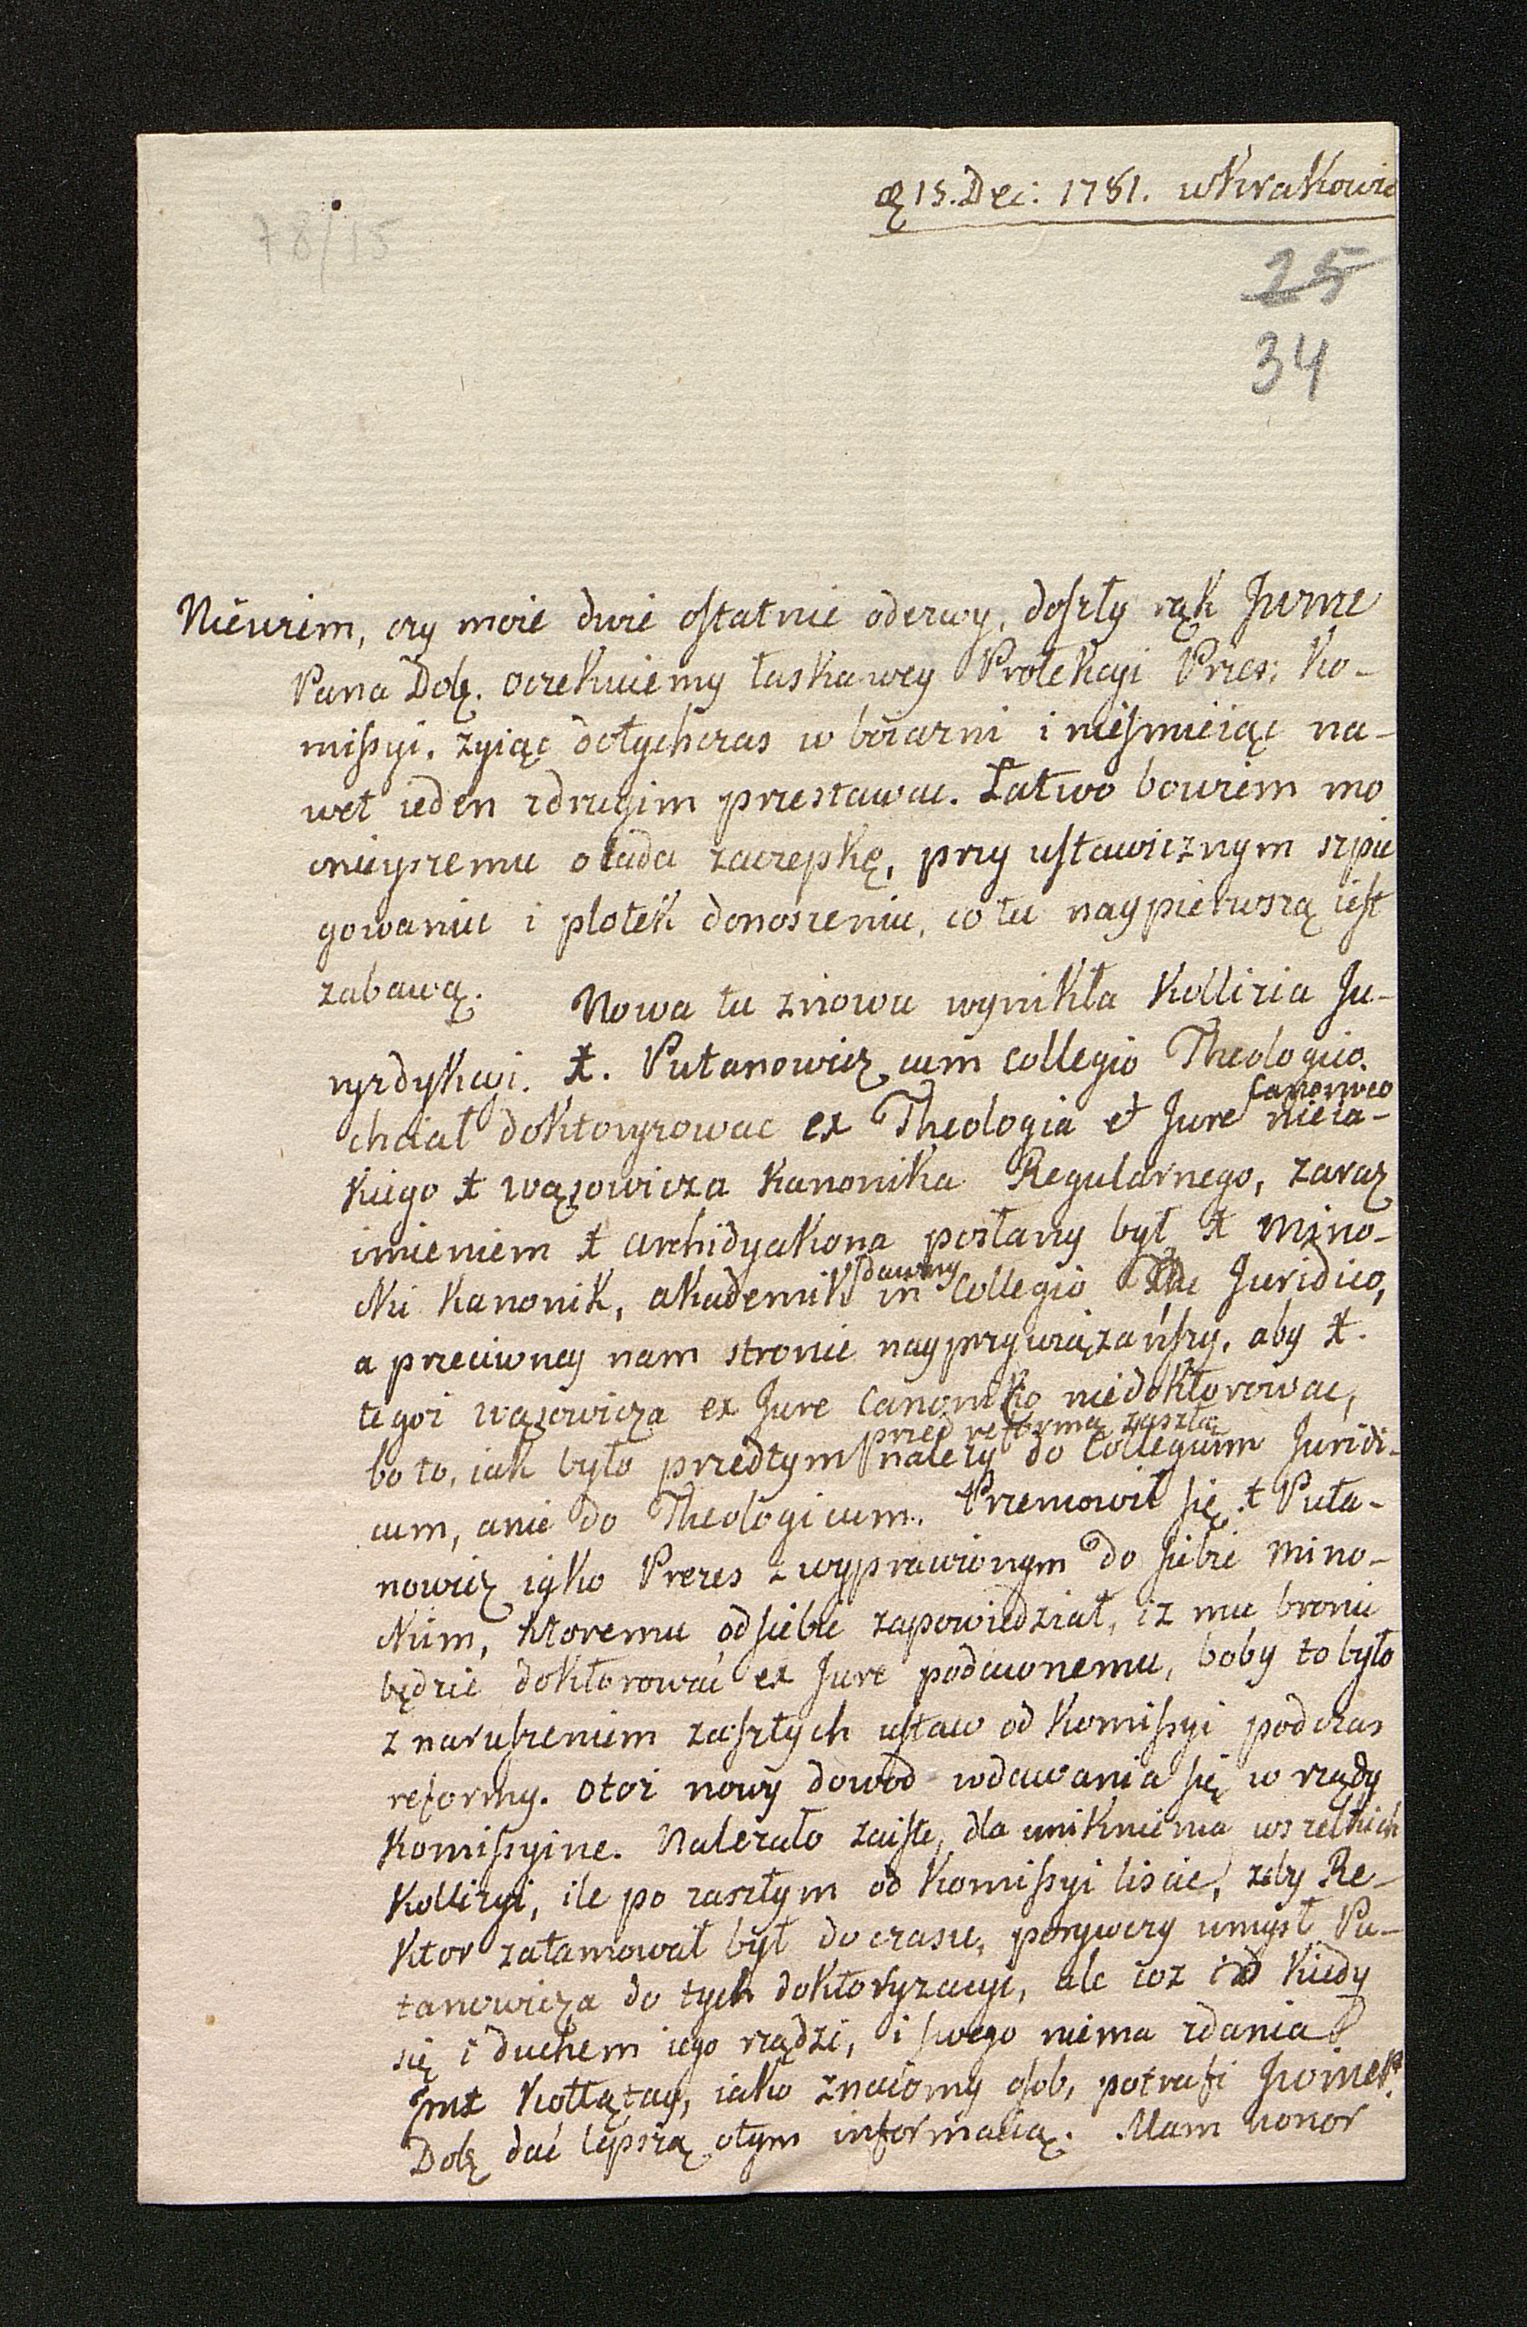 78/15
15. Dec: 1781. w Krakowie
25
34
Niewiem, czy moie dwie ostatnie odezwy, doszły rąk Jwme
Pana Dob. oczekuiemy łaskawey Protekcyi Przes: Ko-
missyi, żyiąc dotychczas w boiazni i nieśmieiąc na-
wet ieden zdrugim przestawac. Łatwo bowiem mo
cnieyszemu o lada zaczepkę, przy ustawicznym szpie
gowaniu i plotek donoszeniu, co tu naypierwszą iest
zabawą. Nowa tu znowu wynikła Kollizia Ju-
ryzdykcyi. X. Putanowicz cum Collegio Theologico
Canonico
chciał doktoryzowac ex Theologia et Jure nieia-
kiego X Wązowicza Kanonika Regularnego, zaraz
imieniem X Archidyakona posłany był X Mino-
dawny
cki Kanonik, akademik in Collegio Juridico,
a przeciwney nam stronie nayprzywiązańszy, aby X.
tegoż Wązowicza ex Jure Canonico niedoktorowac,
przed reformą zaszłą
bo to, iak było przedtym należy do Collegium Juridi-
cum, anie do Theologicum. Przemowił się X Puta-
nowicz iako Prezes z wyprawionym do siebie Mino-
ckim, ktoremu od siebie zapowiedział, iz mu bronic
będzie doktorować ex Jure podawonemu, boby to było
z naruszeniem zaszłych ustaw od Komissyi podczas
reformy. otoż nowy dowod wdawania się w rządy
Komissyine. Należało zaiste, dla uniknienia wszelkich
Kollizyi, ile po zaszłym od Komissyi liscie, żeby Re-
ktor zatamował był do czasu, porywczy umysł Pu-
tanowicza do tych doktoryzacyi, ale coz kiedy
się i duchem iego rządzi, i swego niema zdania?
Jmx Kołłątay, iako znaiomy osob, potrafi Jwimci
Dob dać lepszą otym informacią. Mam honor